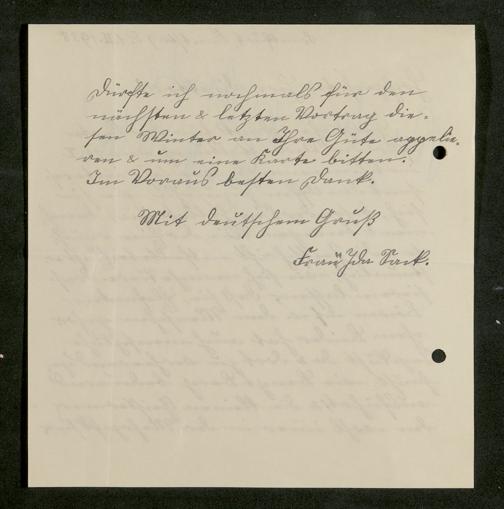 Dürfte ich nochmals für den
nächsten & letzten Vortrag die-
sen Winter an Ihre Güte appelie-
ren & um eine Karte bitten.
Im Voraus besten Dank.
Mit deutschem Gruß
Frau Ida Sack.